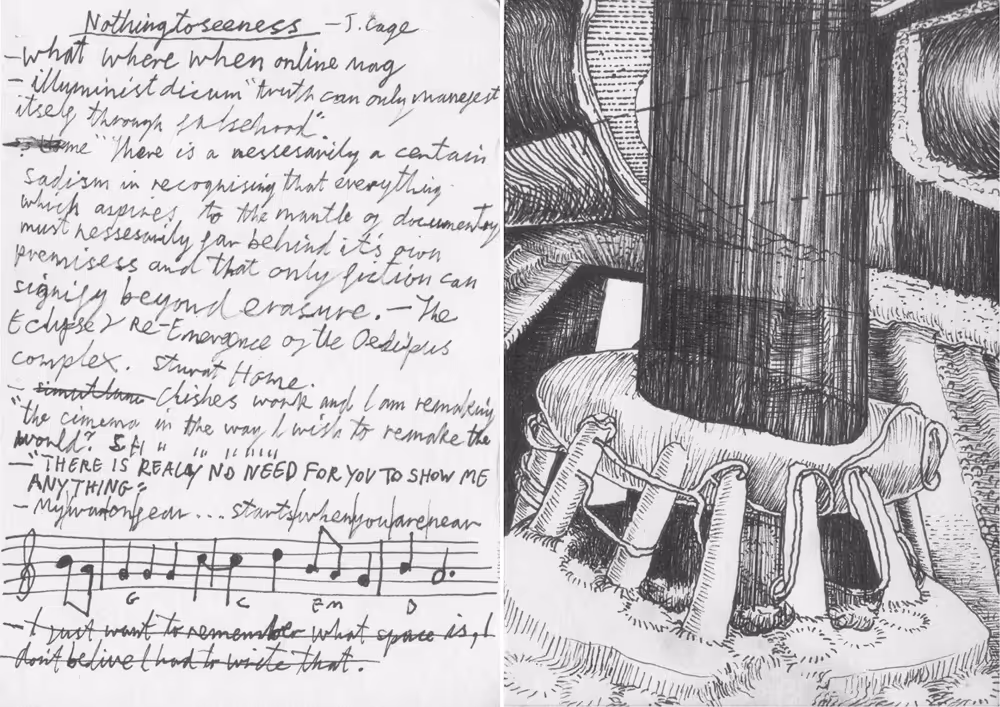 Nothingtoseeness - J. Cage
- what where when online mag
- illuminist dicum "truth can only manefest
itself through falsehood".
"There is a nessesarily a certain
sadism in recognising that everything
which aspires to the mantle of documentary
must nessesarily far behind it's own
premisess and that only fiction can
signify beyond erasure. - The
Eclipse & Re-Emergence of the Oedipus
complex. Sturat Home.
- Clishes work and I am remaking
"the cinema in the way I wish to remake the
world". S H " " " " " "
- "THERE IS REALLY NO NEED FOR YOU TO SHOW ME
ANYTHING"
- My war on fear ... starts/when you/are near
G C Em D
- I just want to remember what space is, I
don't belive I had to write that.